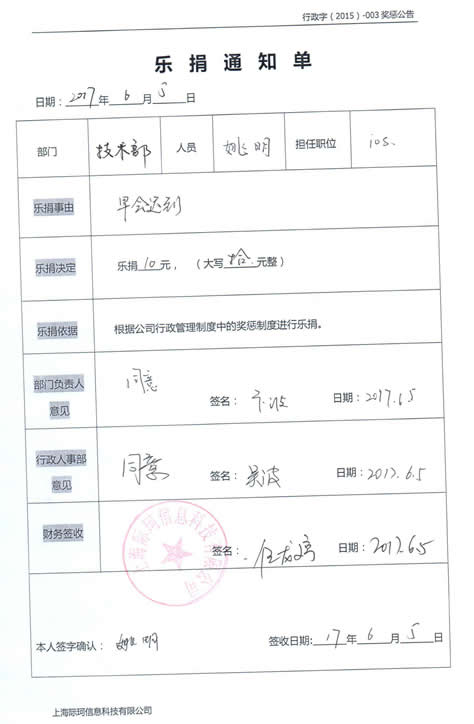 行政字（2015）-003 奖惩公告
乐捐通知单
日期：2017年6月5日
部门 技术部 人员 姚明 担任职位 ios.
乐捐事由 早会迟到
乐捐决定 乐捐10元，（大写拾元整）
乐捐依据 根据公司行政管理制度中的奖惩制度进行乐捐。
部门负责人意见 同意 签名： 日期：2017.6.5
行政人事部意见 同意 签名：吴波 日期：2017.6.5
财务签收 签名： 日期：2017.6.5
上海际珂信息科技有限公司
本人签字确认：姚明 签收日期：17年6月5日
上海际珂信息科技有限公司